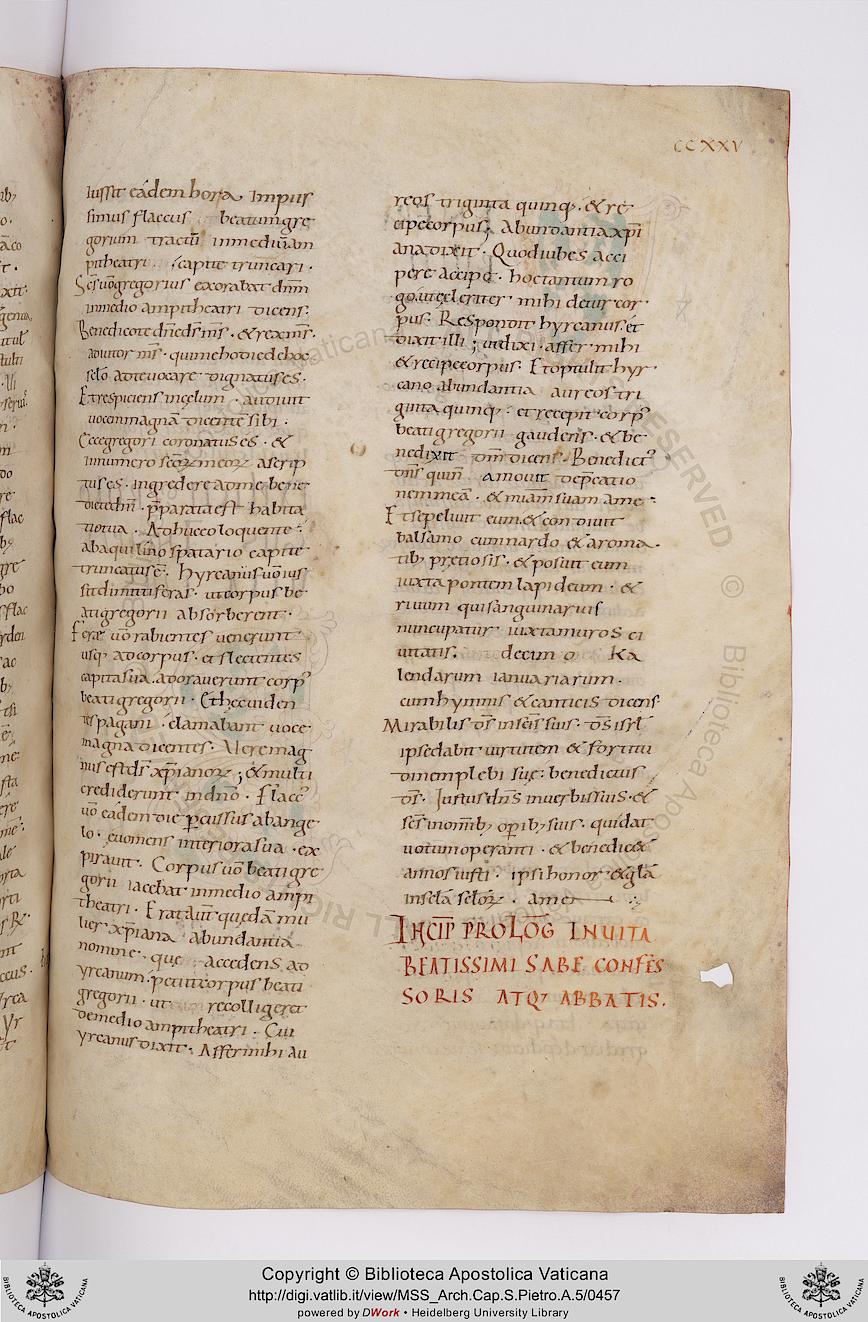 CCXXV
iussit eadem hora Impiis
simus flaccus beatum gre
gorium tractũ inmediũam
pitheatri. capite truncari.
Sc̄s uō gregorius exorabat dnm̄
inmedio ampitheatri dicens.
Benedicote dn̄e ds̄ ms̄. & rex ms̄.
adiutor ms̄. qui me hodie de hoc
sclō ad te uocare dignatus es.
Et respiciens incęlum. audiuit
uocem magnā dicentē sibi.
Ecce gregori coronatus es. &
innumero scōꝝ meoꝝ ascrip
tus es. ingredere adme bene
dicte dn̄i. p̄parata est habita
tio tua. Adhuc eo loquente.
ab aquilino spatario capite
truncatus ē. hyrcanus uō ius
sit dimitti feras. ut corpus be
ati gregorii absorberent.
Ferae uō rabientes uenerunt
usq; ad corpus. et flectentes
capita sua. adorauerunt corpꝰ
beati gregorii. Et hec uiden
tes pagani. clamabant uoce
magna dicentes. Uere mag
nus est ds̄ xp̄ianoꝝ; & multi
crediderunt indn̄o. Flaccꝰ
uō eadem die ꝑcussus ab ange
lo. euomens interiora sua. ex
pirauit. Corpus uō beati gre
gorii iacebat inmedio ampi
theatri. Erat aūt quędā mu
lier xp̄iana abundantia
nomine. quę accedens ad
yrcanum. petiit corpus beati
gregorii. ut recolligeret
demedio ampitheatri. Cui
yrcanus dixit. Affer mihi au
reos triginta quinq;. & re
cipe corpus; Abundantia xp̄i
ana dixit. Quod iubes acci
pere accipe. hoc tantum ro
go. ut celeriter mihi detur cor
pus. Respondit hyrcanus. et
dixit illi; ut dixi. affer mihi
& recipe corpus. Et optulit hyr
cano abundantia aureos tri
ginta quinq;. et recepit corpꝰ
beati gregorii gaudens. & be
nedixit dm̄ dicens. Benedictꝰ
dn̄s qui n̄ amouit dep̄catio
nem meā. & mi am̄ suam a me.
Et sepeliuit eum. & condiuit
balsamo cum nardo & aroma.
tib; pretiosis. & posuit eum
iuxta pontem lapideum. &
riuum qui sanguinarius
nuncupatur iuxta muros ci
uitatis. decimo Ka
lendarum ianuariarum.
cum hymnis & canticis dicens.
Mirabilis ds̄ insc̄is suis. ds̄ isrl̄
ipse dabit uirtutem & fortitu
dinem plebi suę: benedictus
ds̄. Iustus dn̄s inuerbis suis. &
sc̄s inom̄ib; oꝑib; suis. qui dat
uotum operanti. & benedicet
annos iusti. ipsi honor & glā
insclā sclōꝝ. amen
INCIP̄ PROLOG INUITA
BEATISSIMI SABE CONFES
SORIS ATQ; ABBATIS.
Copyright © Biblioteca Apostolica Vaticana
http://digi.vatlib.it/view/MSS_Arch.Cap.S.Pietro.A.5/0457
powered by DWork • Heidelberg University Library